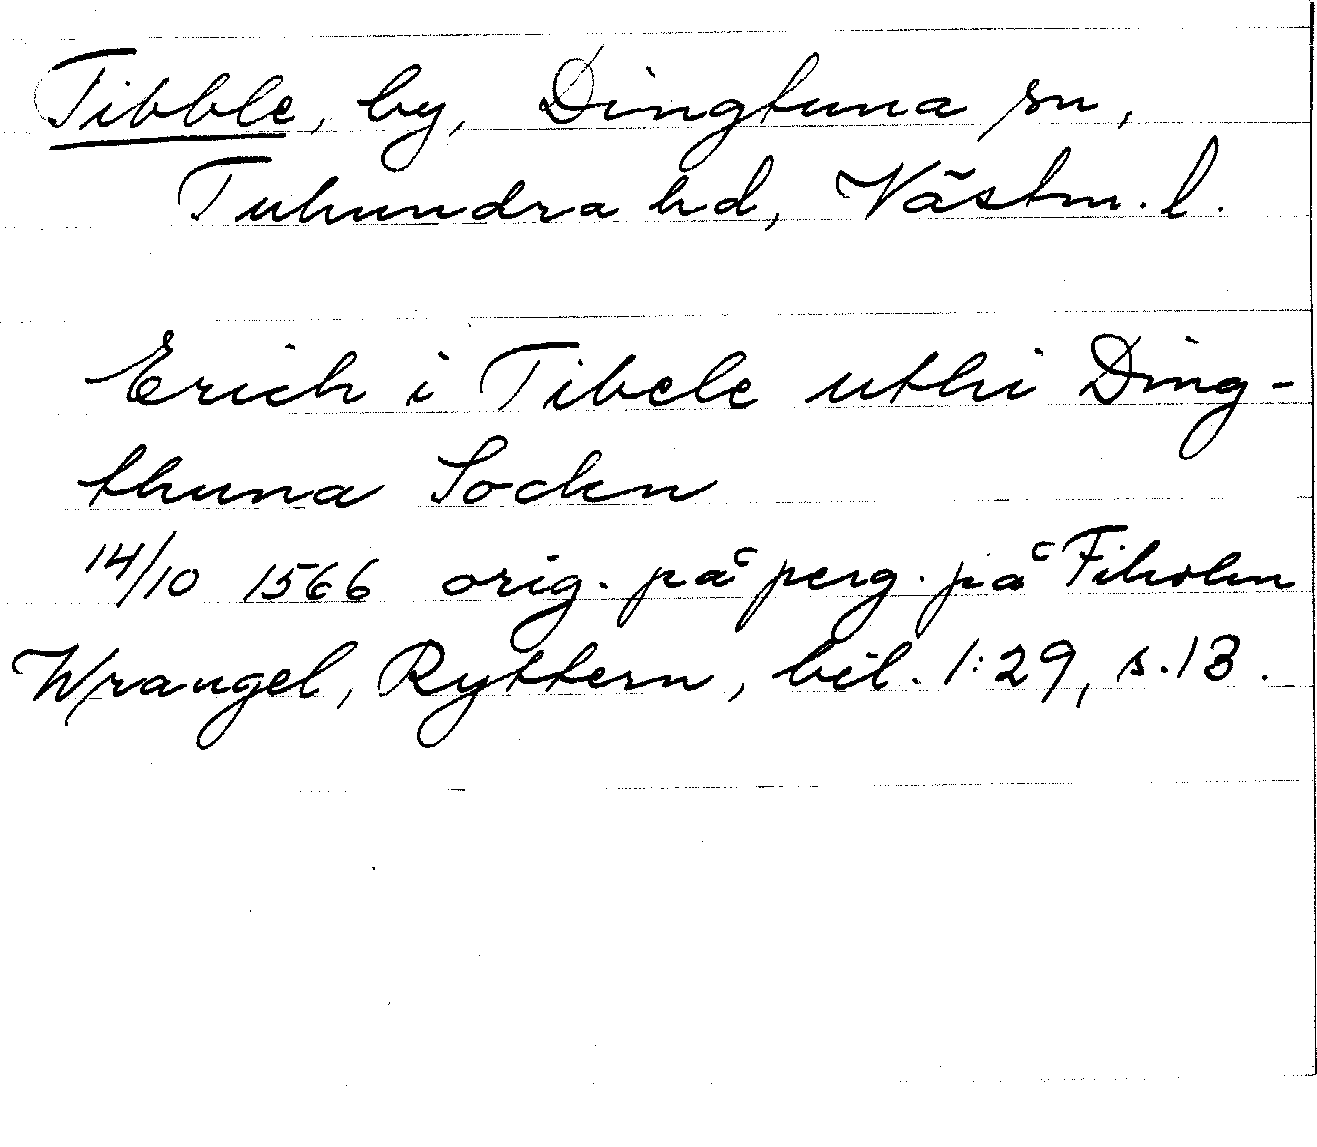 Tibble, by, Dingtuna sn,
Tuhundra hd, Västm. l.
Erich i Tibele uthi Ding-
thuna Sockn
14/10 1566 orig. på perg. på Fiholm
Wrangel, Ryttern, bil. 1:29, s. 13.